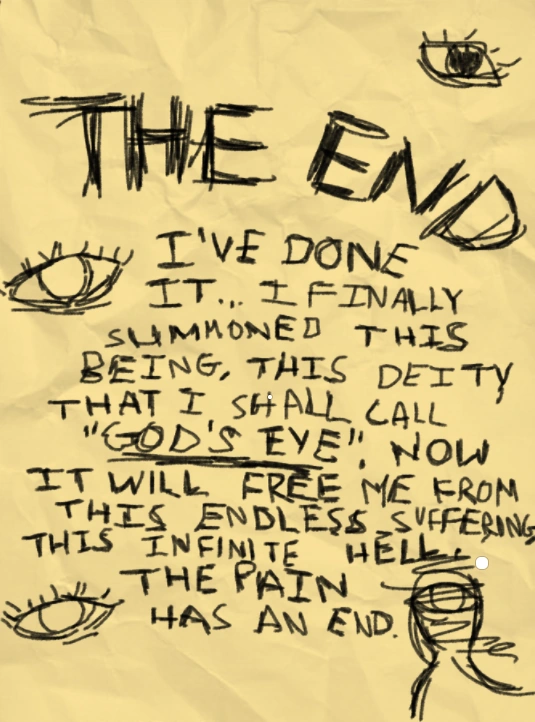 THE END
I'VE DONE
IT... I FINALLY
SUMMONED THIS
BEING, THIS DEITY
THAT I SHALL CALL
"GOD'S EYE". NOW
IT WILL FREE ME FROM
THIS ENDLESS SUFFERING,
THIS INFINITE HELL.
THE PAIN
HAS AN END.